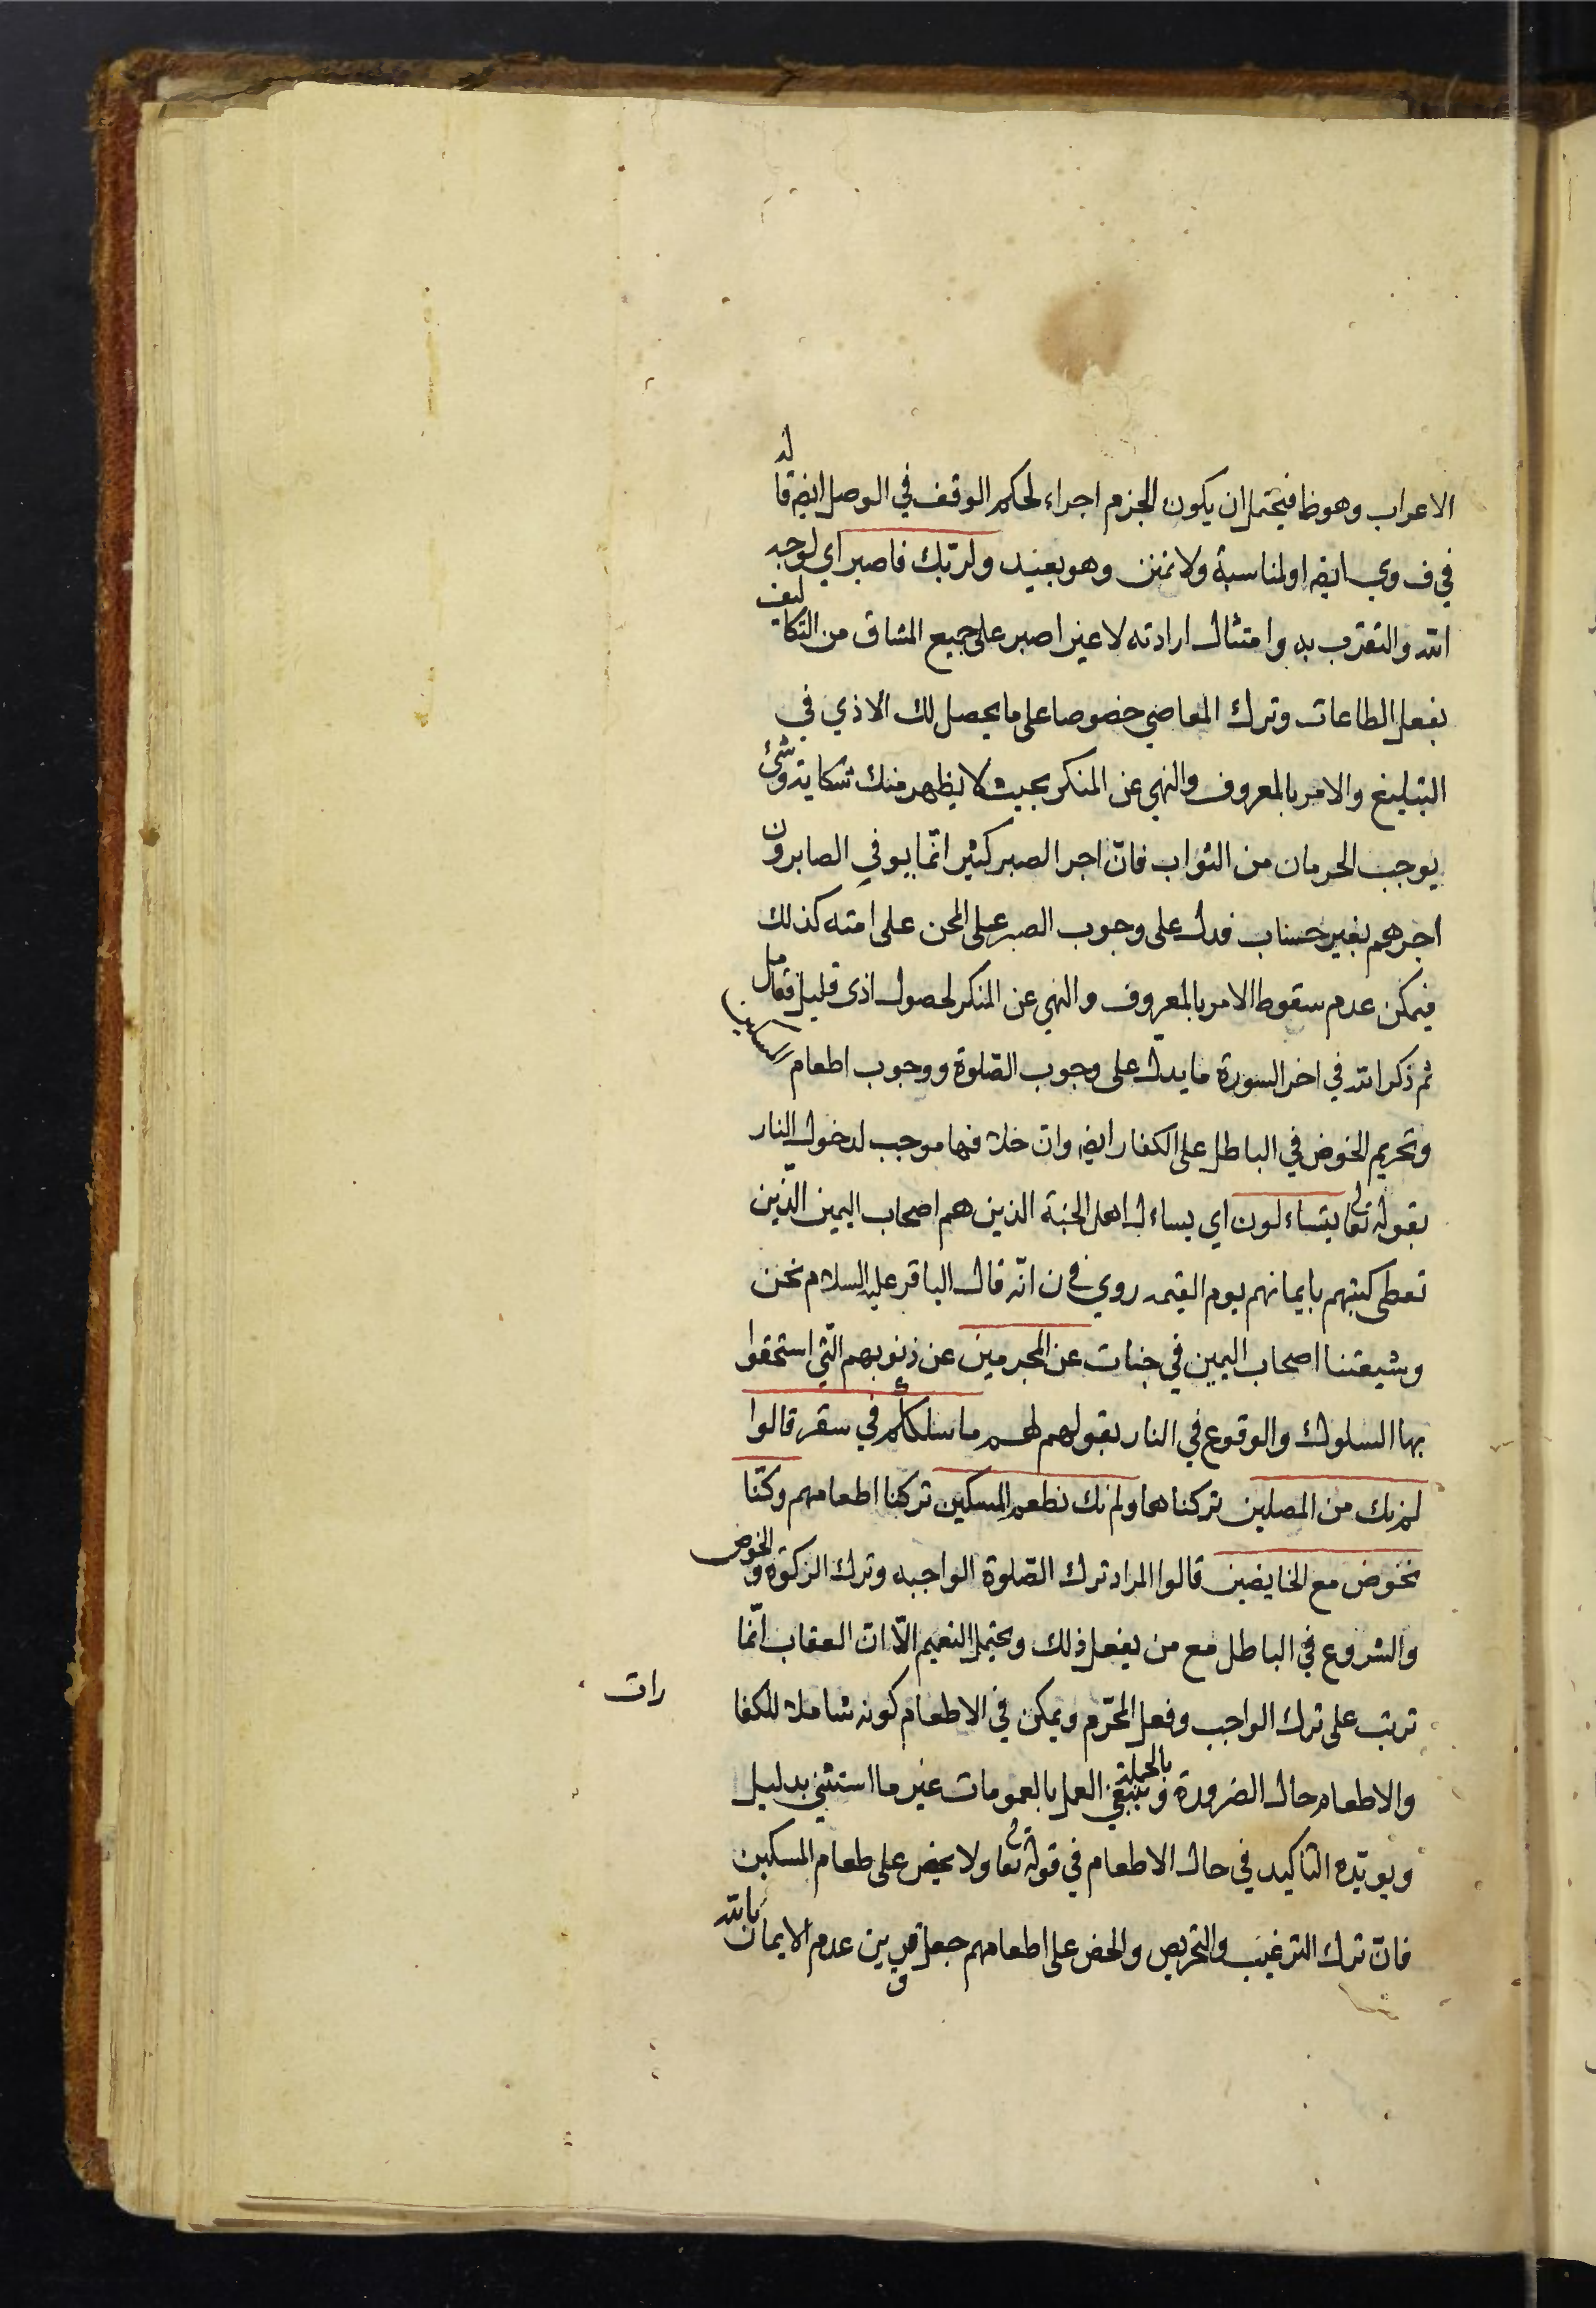 الاعراب وهوظا فيحتمل ان يكون الجزم اجراء لحكم الوقف في الوصل ايضه قاله
في ف وي ايضه او لمناسبة ولا تمنن وهو بعيد ولربك فاصبر اي لوجه
الله والتقرب به وامتثال ارادته لا غير اصبر على جميع المشاق من التكاليف
بفعل الطاعات وترك المعاصي خصوصا على ما يحصل لك الاذي في
التبليغ والامر بالمعروف والنهي عن المنكر بحيث لا يظهر منك شكاية وشئ
يوجب الحرمان من الثواب فانّ اجر الصبر كثير انّما يوفي الصابرون
اجرهم بغير حساب فدل على وجوب الصبر على المحن على امته كذلك
فيمكن عدم سقوط الامر بالمعروف والنهي عن المنكر لحصول اذى قليل فتامل
ثم ذكر الله في اخر السورة ما يدلّ على وجوب الصّلوة ووجوب اطعام المساكين
وتحريم الخوض في الباطل على الكفار ايضه وان خلافها موجب لدخول النار
بقوله تعالى يتساءلون اي يساءل اهل الجنة الذين هم اصحاب اليمين الّذين
تعطى كتبهم بايمانهم يوم القيمه روي في ن انّه قال الباقر عليه السلام نحن
وشيعتنا اصحاب اليمين في جنات عن المجرمين عن ذنوبهم الّتي استحقوا
بها السلوك والوقوع في النار بقولهم لهم ما سلككم في سقر قالوا
لم نك من المصلين تركناها ولم نك نطعم المسكين تركنا اطعامهم وكنّا
نخوض مع الخايضين قالوا المراد ترك الصّلوة الواجبه وترك الزكوة والخوض
والشروع في الباطل مع من يفعل ذلك ويحتمل التعميم الّا انّ العقاب انّما
ترتب على ترك الواجب وفعل المحرّم ويمكن في الاطعام كونه شاملا للكفارات
والاطعام حال الضرورة وبالجملة ينبغي العمل بالعمومات غير ما استثني بدليل
ويويّده التاكيد في حال الاطعام في قوله تعالى ولا يحض على طعام المسكين
فانّ ترك الترغيب والتحريص والحض على اطعامهم جعل قرين عدم الايمان بالله
و